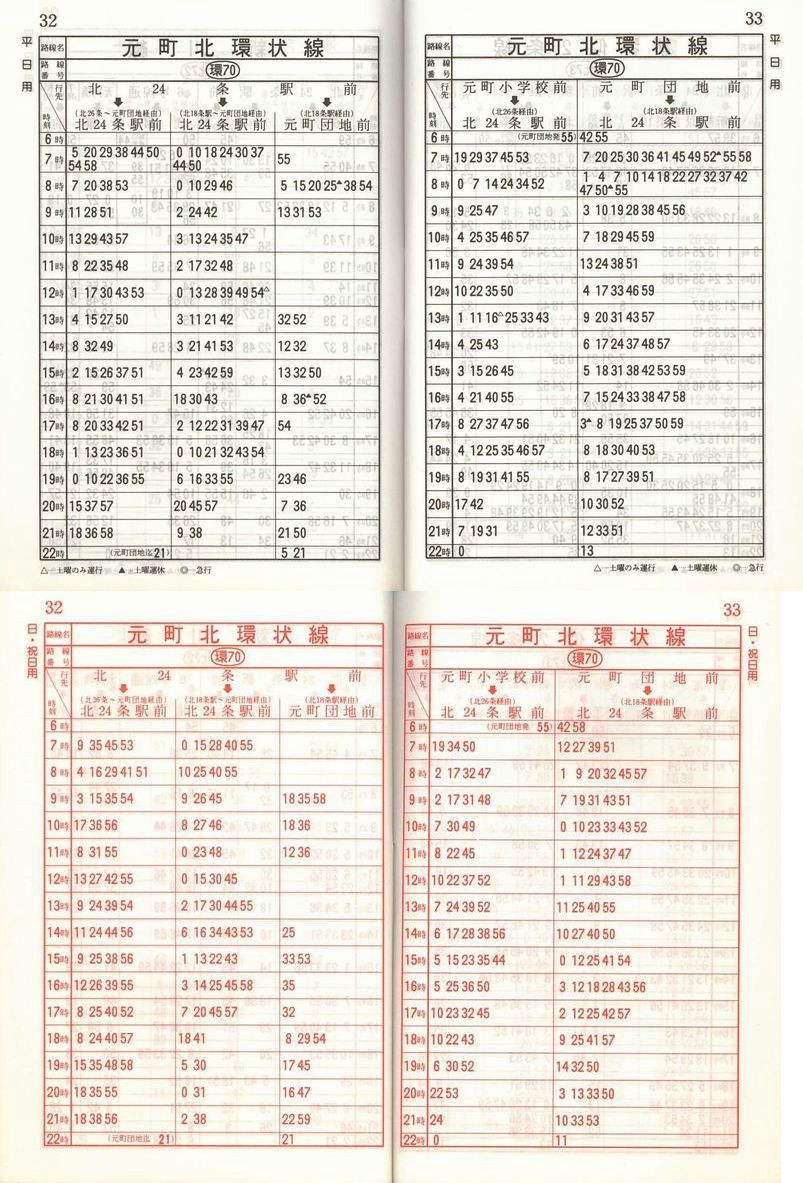 32
平日用
路線名 元町北環状線
路線番号 環70
行先 北 24 条 駅 前
時刻 (北26条〜元町団地経由) 北24条駅前 (北18条駅〜元町団地経由) 北24条駅前 (北18条駅経由) 元町団地前
6時
7時 5 20 29 38 44 50 54 58 | 0 10 18 24 30 37 44 50 | 55
8時 7 20 38 53 | 0 10 29 46 | 5 15 20 25▲ 38 54
9時 11 28 51 | 2 24 42 | 13 31 53
10時 13 29 43 57 | 3 13 24 35 47
11時 8 22 35 48 | 2 17 32 48
12時 1 17 30 43 53 | 0 13 28 39 49 54△
13時 4 15 27 50 | 3 11 21 42 | 32 52
14時 8 32 49 | 3 21 41 53 | 12 32
15時 2 15 26 37 51 | 4 23 42 59 | 13 32 50
16時 8 21 30 41 51 | 18 30 43 | 8 36▲ 52
17時 8 20 33 42 51 | 2 12 22 31 39 47 | 54
18時 1 13 23 36 51 | 0 10 21 32 43 54
19時 0 10 22 36 55 | 6 16 33 55 | 23 46
20時 15 37 57 | 20 45 57 | 7 36
21時 18 36 58 | 9 38 | 21 50
22時 (元町団地迄 21) | 5 21
△―土曜のみ運行 ▲―土曜運休 ◎―急行
33
平日用
路線名 元町北環状線
路線番号 環70
行先 元町小学校前 元町団地前
時刻 (北26条経由) 北24条駅前 (北18条駅経由) 北24条駅前
6時 (元町団地発 55) | 42 55
7時 19 29 37 45 53 | 7 20 25 30 36 41 45 49 52▲ 55 58
8時 0 7 14 24 34 52 | 1 4 7 10 14 18 22 27 32 37 42 47 50▲ 55
9時 9 25 47 | 3 10 19 28 38 45 56
10時 4 25 35 46 57 | 7 18 29 45 59
11時 9 24 39 54 | 13 24 38 51
12時 10 22 35 50 | 4 17 33 46 59
13時 1 11 16△ 25 33 43 | 9 20 31 43 57
14時 4 25 43 | 6 17 24 37 48 57
15時 3 15 26 45 | 5 18 31 38 42 53 59
16時 4 21 40 55 | 7 15 24 33 38 47 58
17時 8 27 37 47 56 | 3▲ 8 19 25 37 50 59
18時 4 12 25 35 46 57 | 8 18 30 40 53
19時 8 19 31 41 55 | 8 17 27 39 51
20時 17 42 | 10 30 52
21時 7 19 31 | 12 33 51
22時 0 | 13
△―土曜のみ運行 ▲―土曜運休 ◎―急行
32
日・祝日用
路線名 元町北環状線
路線番号 環70
行先 北 24 条 駅 前
時刻 (北26条〜元町団地経由) 北24条駅前 (北18条駅〜元町団地経由) 北24条駅前 (北18条駅経由) 元町団地前
6時
7時 9 35 45 53 | 0 15 28 40 55
8時 4 16 29 41 51 | 10 25 40 55
9時 3 15 35 54 | 9 26 45 | 18 35 58
10時 17 36 56 | 8 27 46 | 18 36
11時 8 31 55 | 0 23 48 | 12 36
12時 13 27 42 55 | 0 15 30 45
13時 9 24 39 54 | 2 17 30 44 55
14時 11 24 44 56 | 6 16 34 43 53 | 25
15時 9 25 38 56 | 1 13 22 43 | 33 53
16時 12 26 39 55 | 3 14 25 45 58 | 35
17時 8 25 40 52 | 7 20 45 57 | 32
18時 8 24 40 57 | 18 41 | 8 29 54
19時 15 35 48 58 | 5 30 | 17 45
20時 18 35 55 | 0 31 | 16 47
21時 18 38 56 | 2 38 | 22 59
22時 (元町団地迄 21) | 21
33
日・祝日用
路線名 元町北環状線
路線番号 環70
行先 元町小学校前 元町団地前
時刻 (北26条経由) 北24条駅前 (北18条駅経由) 北24条駅前
6時 (元町団地発 55) | 42 58
7時 19 34 50 | 12 27 39 51
8時 2 17 32 47 | 1 9 20 32 45 57
9時 2 17 31 48 | 7 19 31 43 51
10時 7 30 49 | 0 10 23 33 43 52
11時 8 22 45 | 1 12 24 37 47
12時 10 22 37 52 | 1 11 29 43 58
13時 7 24 39 52 | 11 25 40 55
14時 6 17 28 38 56 | 10 27 40 50
15時 5 15 23 35 44 | 0 12 25 41 54
16時 5 25 36 50 | 3 12 18 28 43 56
17時 10 23 32 45 | 2 12 25 42 57
18時 10 22 43 | 9 25 41 57
19時 6 30 52 | 14 32 50
20時 22 53 | 3 13 33 50
21時 24 | 10 33 53
22時 0 | 11